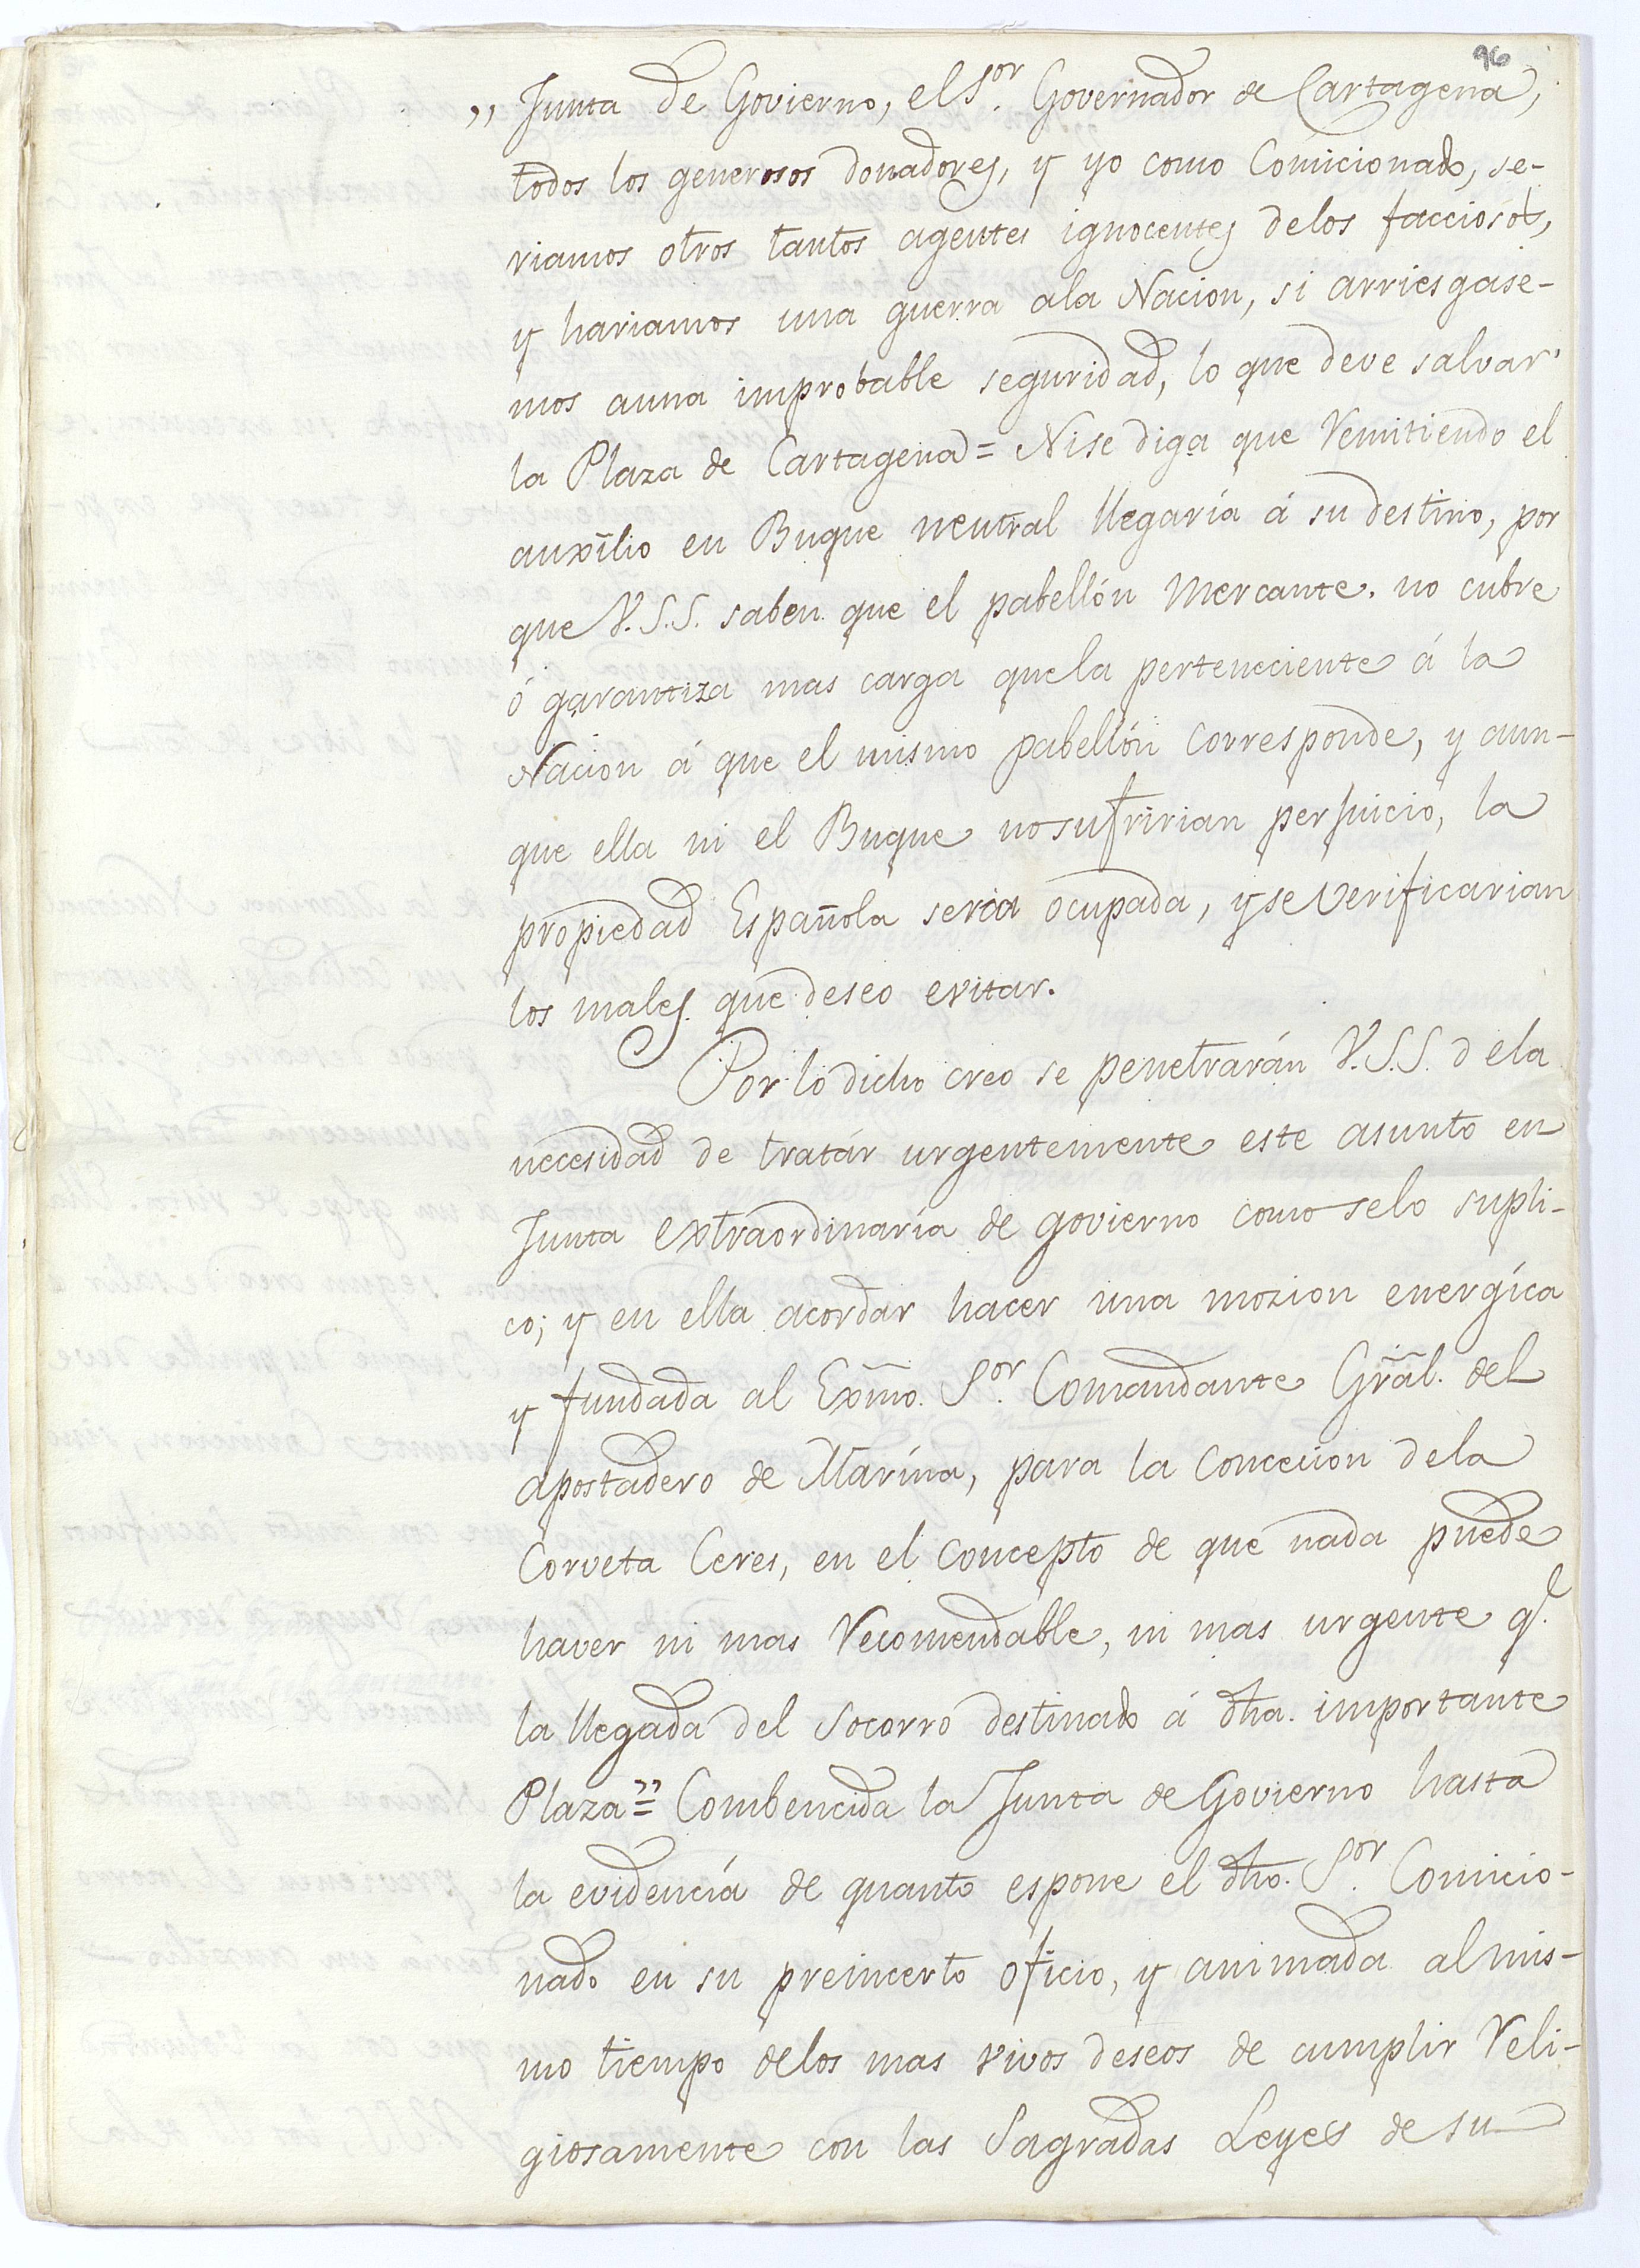 96
„ Junta de Govierno, el Sor. Governador de Cartagena,
todos los generosos donadores, y yo como Comicionado, se-
riamos otros tantos agentes ignocentes delos facciosos,
y hariamos una guerra ala Nacion, si arriesgase-
mos auna improbable seguridad, lo que deve salvar
la Plaza de Cartagena = Nise diga que remitiendo el
auxîlio en Buque neutral llegaría á su destino, por
que V.S.S. saben que el pabellón Mercante no cubre
ó garantiza mas carga quela perteneciente á la
Nacion á que el mismo pabellón corresponde, y aun-
que ella ni el Buque nosufririan perjuicio, la
propiedad Española seria ocupada, y se verificarian
los males que deseo evitar.
Por lo dicho creo se penetrarán V.S.S. dela
necesidad de tratár urgentemente este asunto en
Junta extraordinaría de govierno como selo supli-
co; y en ella acordar hacer una mozion energíca
y fundada al Exmo. Sor. Comandante Gral. del
apostadero de Marína, para la concecion dela
Corveta Ceres, en el concepto de que nada puede
haver ni mas recomendable, ni mas urgente qe.
la llegada del socorro destinado á dha. importante
Plaza" = Combencida la Junta de Govierno hasta
la evidencía de quanto espone el dho. Sor. Comicio-
nado en su preincerto oficio, y animada almis-
mo tiempo delos mas vivos deseos de cumplir reli-
giosamente con las Sagradas Leyes de su